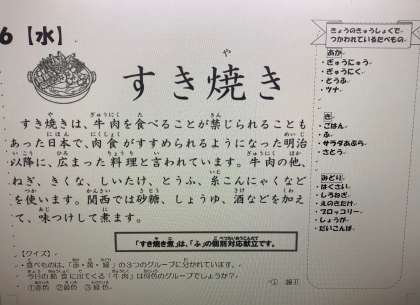 6【水】
すき焼き
すき焼きは、牛肉を食べることが禁じられることも
あった日本で、肉食がすすめられるようになった明治
以降に、広まった料理と言われています。牛肉の他、
ねぎ、きくな、しいたけ、とうふ、糸こんにゃくなど
を使います。関西では砂糖、しょうゆ、酒などを加え
て、味つけして煮ます。
「すき焼き煮」は、「ふ」の個別対応献立です。
【クイズ】
・食べものは、「赤・黄・緑」の3つのグループに分かれています。
今日の給食に出てくる「牛肉」は何色のグループでしょうか？
①赤色 ②黄色 ③緑色
きょうのきゅうしょくで
つかわれているたべもの
あか
・ぎゅうにゅう
・ぎゅうにく
・とうふ
・ツナ
き
・ごはん
・ふ
・サラダあぶら
・さとう
みどり
・はくさい
・しろねぎ
・えのきたけ
・ブロッコリー
・しょうが
・だいこんば